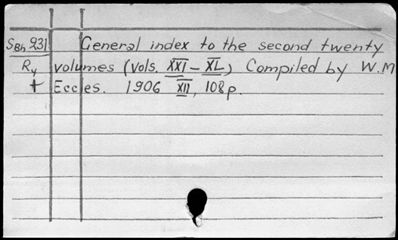 SBh 931 General index to the second twenty
Ry volumes (vols. XXI-XL) Compiled by W.M
+ Eccles. 1906 XII, 108p.